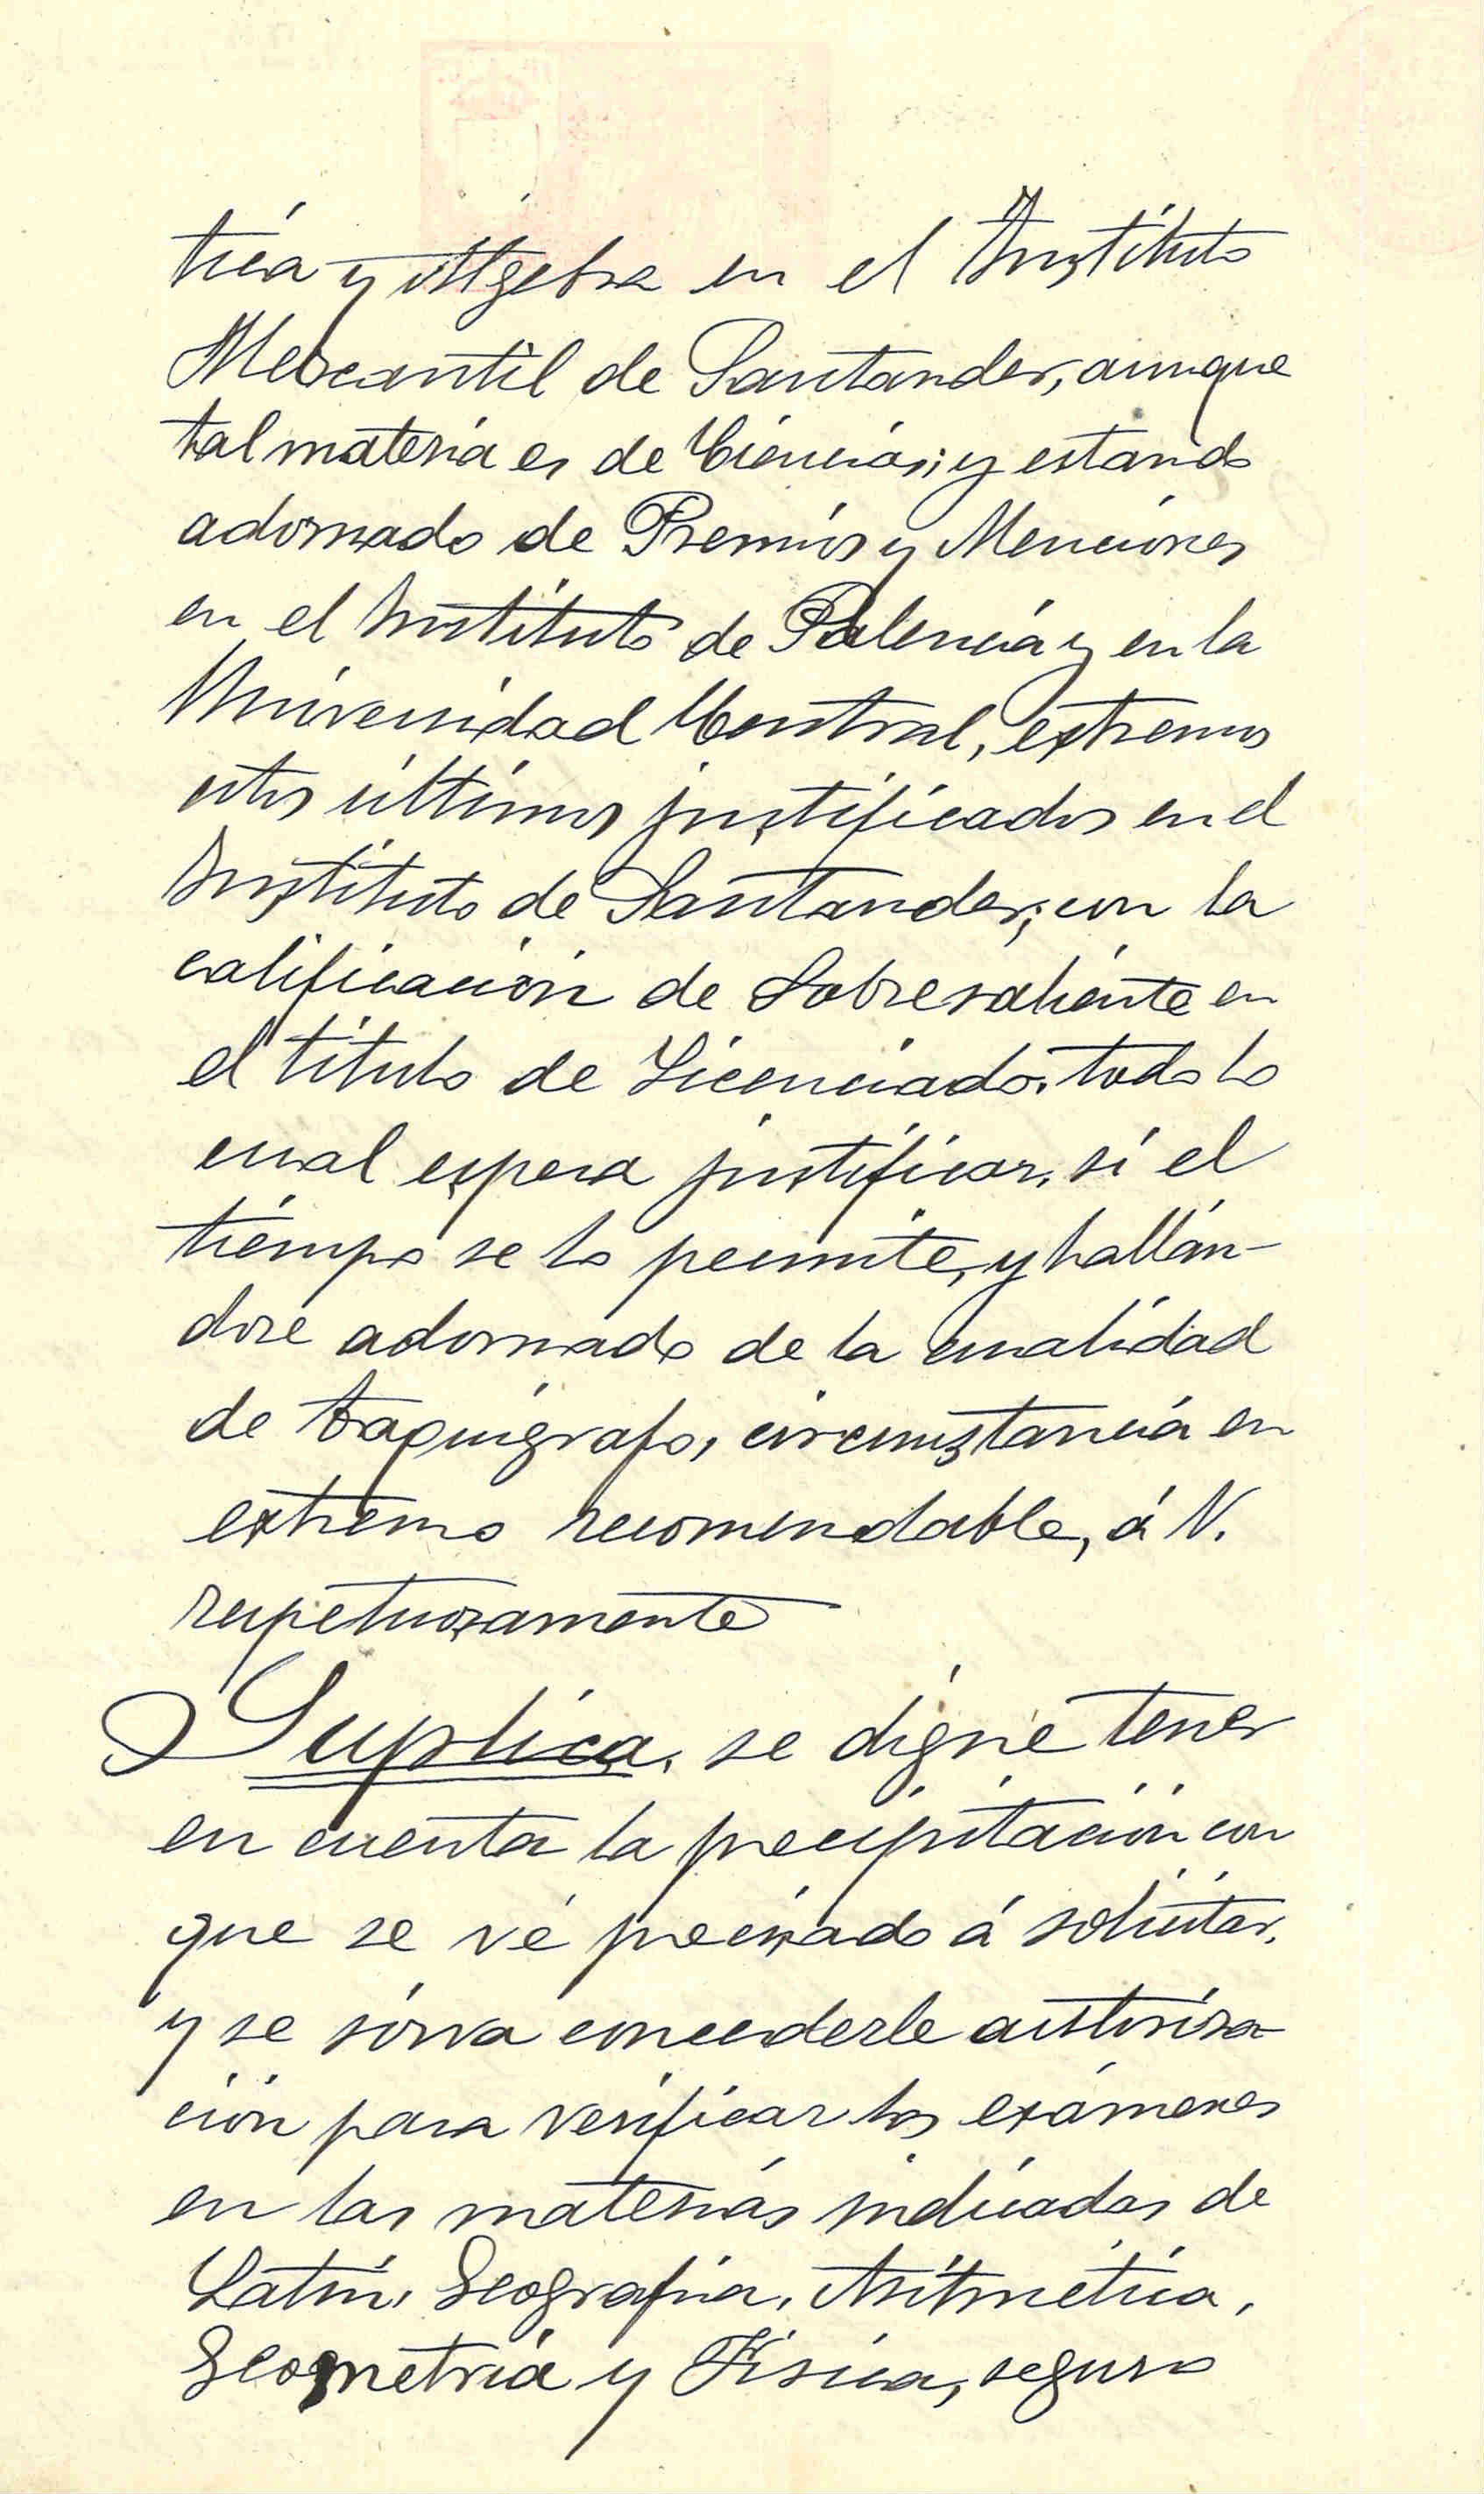 tica y Algebra en el Instituto
Mercantil de Santander, aunque
tal materia es de Ciencias; y estando
adornado de Premios y Menciones
en el Instituto de Palencia y en la
Universidad Central, extremos
estos últimos justificados en el
Instituto de Santander; con la
calificación de Sobresaliente en
el título de Licenciado, todo lo
cual espera justificar, si el
tiempo se lo permite, y hallán-
dose adornado de la cualidad
de taquígrafo, circunstancia en
extremo recomendable, á V.
respetuosamente
Suplica, se digne tener
en cuenta la precipitación con
que se vé precisado á solicitar,
y se sirva concederle autoriza-
ción para verificar los exámenes
en las materias indicadas de
Latín, Geografía, Aritmética,
Geometría y Física, seguro